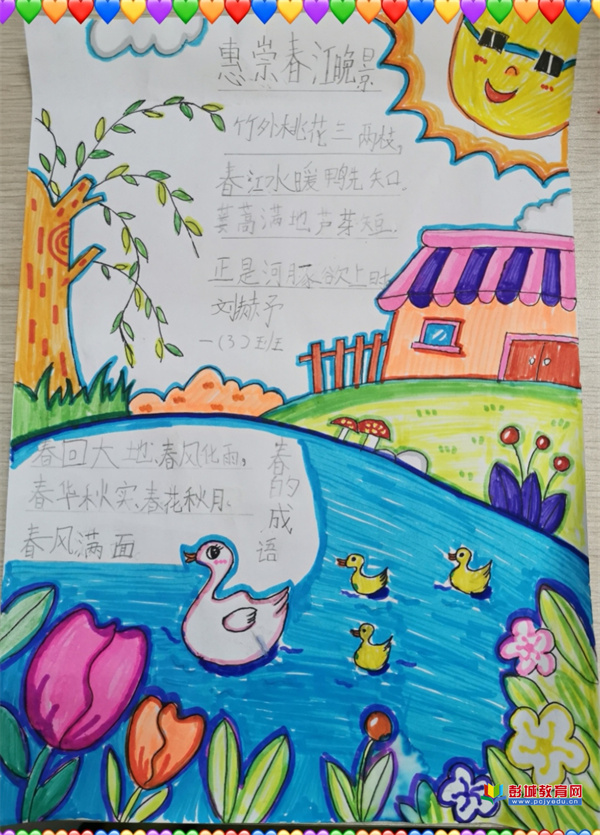 惠崇春江晚景
竹外桃花三两枝,
春江水暖鸭先知.
蒌蒿满地芦芽短.
正是河豚欲上时
刘赫予
一(3)班
春回大地、春风化雨,
春华秋实、春花秋月.
春风满面
春的成语
彭城教育网
www.pcjyedu.cn